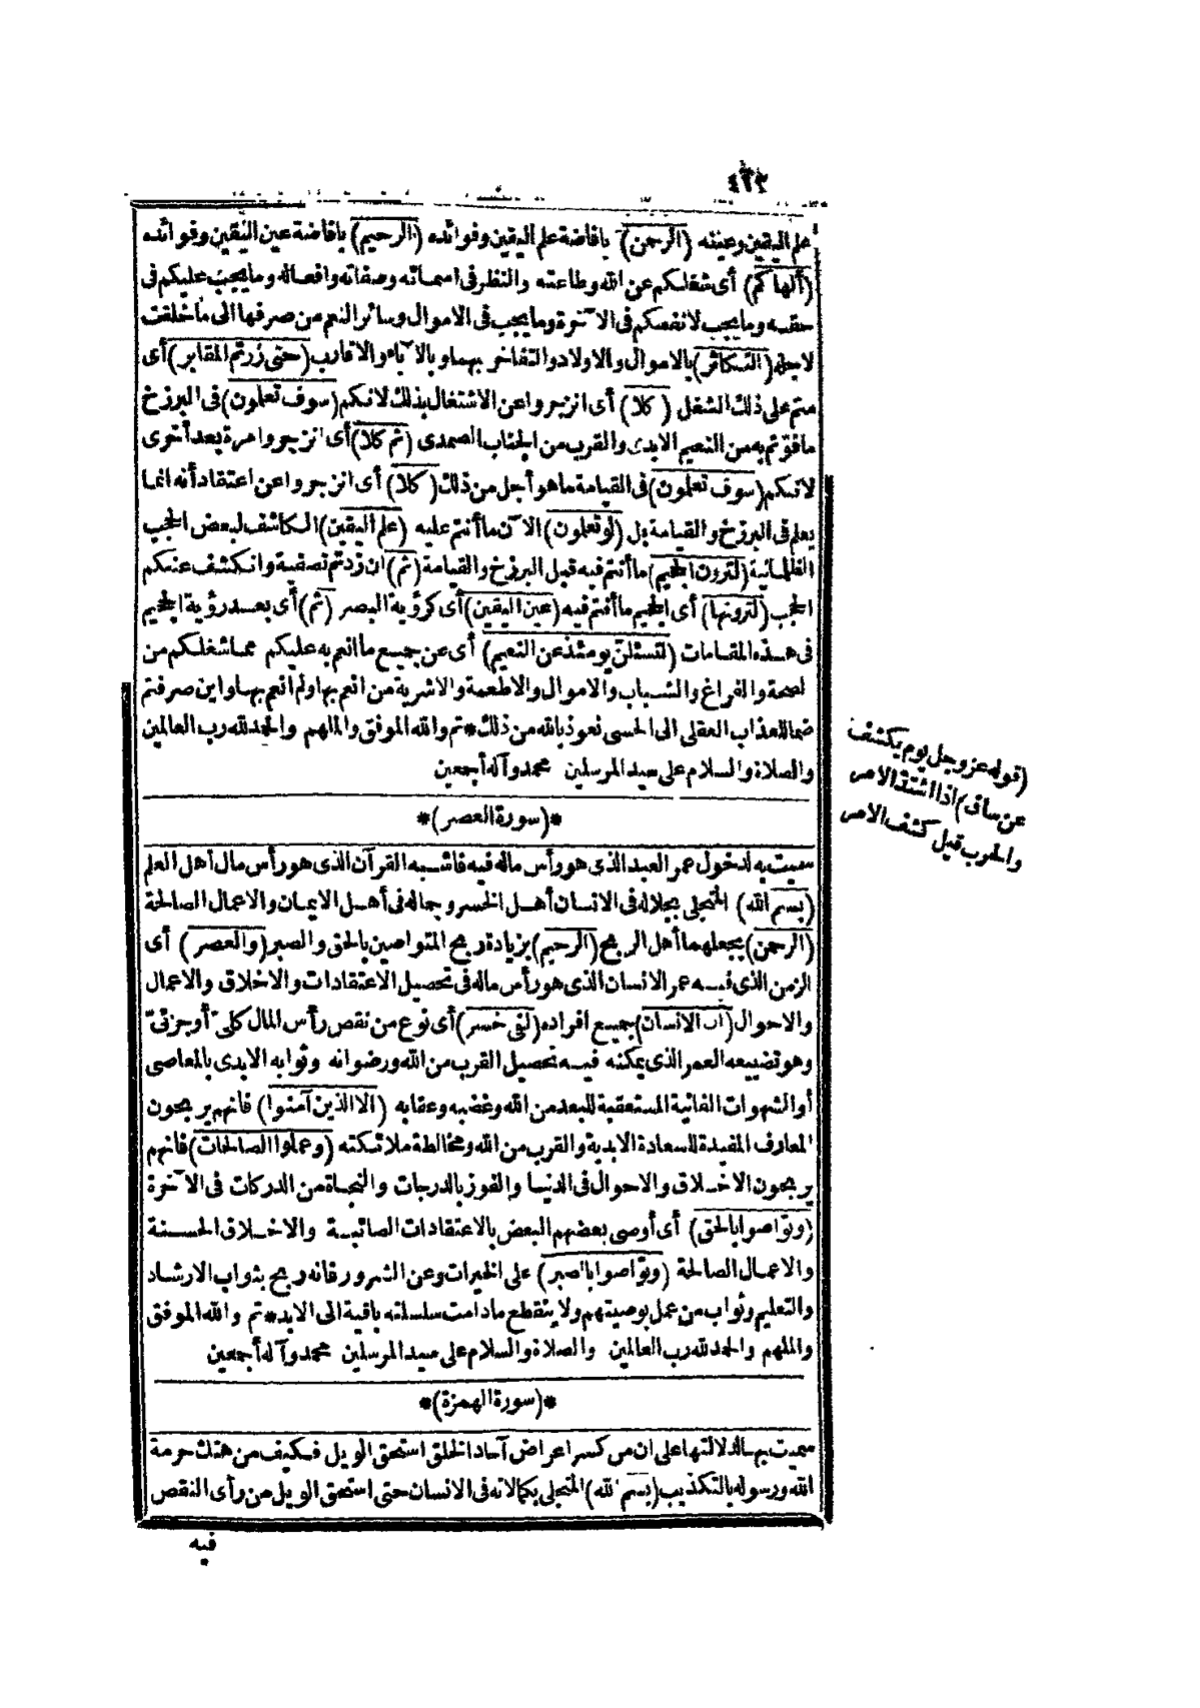 ٤٢٣
علم اليقين وعينه (الرحمن) بافاضة علم اليقين وفوائده (الرحيم) بافاضة عين اليقين وفوائده
(ألهاكم) أى شغلكم عن الله وطاعته والنظر فى اسمائه وصفاته وافعاله وما يجب عليكم فى
حقه وما يجب لانفسكم فى الآخرة وما يجب فى الاموال وسائر النعم من صرفها الى ما خلقت
لاجله (التكاثر) بالاموال والاولاد والتفاخر بهما وبالآباء والاقارب (حتى زرتم المقابر) أى
متم على ذلك الشغل (كلا) أى انزجروا عن الاشتغال بذلك لانكم (سوف تعلون) فى البرزخ
ما فوّتم به من النعيم الابدى والقرب من الجناب الصمدى (ثم كلا) أى انزجروا مرة بعد أخرى
لانكم (سوف تعلون) فى القيامة ما هو أجل من ذلك (كلا) أى انزجروا عن اعتقاد أنه انما
يعلم فى البرزخ والقيامة بل (لو تعلون) الآن ما أنتم عليه (علم اليقين) الكاشف لبعض الحجب
الظلمانية (لترون الجحيم) ما أنتم فيه قبل البرزخ والقيامة (ثم) ان زدتم تصفية وانكشف عنكم
الحجب (لترونها) أى الجحيم ما أنتم فيه (عين اليقين) أى كرؤية البصر (ثم) أى بعد رؤية الجحيم
فى هذه المقامات (لتسئلن يومئذ عن النعيم) أى عن جميع ما أنعم به عليكم مما شغلكم من
لصحة والفراغ والشباب والاموال والاطعمة والاشربة من انعم بها ولم انعم بها واين صرفتم
ضما للعذاب العقلى الى الحسى نعوذ بالله من ذلك * تم والله الموفق والملهم والحمد لله رب العالمين
والصلاة والسلام على سيد المرسلين محمد وآله أجمعين
(قوله عز وجل يوم يكشف
عن ساق) اذا اشتد الامر
والحرب قيل كشف الامر
*(سورة العصر)*
سميت به لدخول عمر العبد الذى هو رأس ماله فيه فاشبه القرآن الذى هو رأس مال أهل العلم
(بسم الله) المتجلى بجلاله فى الانسان أهل الخسر وجماله فى أهل الايمان والاعمال الصالحة
(الرحمن) بجعلهما أهل الربح (الرحيم) بزيادة ربح المتواصين بالحق والصبر (والعصر) أى
الزمن الذى فيه عمر الانسان الذى هو رأس ماله فى تحصيل الاعتقادات والاخلاق والاعمال
والاحوال (ان الانسان) جميع افراده (لفى خسر) أى نوع من نقص رأس المال كلىّ أو جزئىّ
وهو تضييعه العمر الذى يمكنه فيه تحصيل القرب من الله ورضوانه وثوابه الابدى بالمعاصى
أو الشهوات الفانية المستعقبة للبعد من الله وغضبه وعقابه (الا الذين آمنوا) فانهم يربحون
المعارف المفيدة للسعادة الابدية والقرب من الله ومخالطة ملائكته (وعملوا الصالحات) فانهم
يربحون الاخلاق والاحوال فى الدنيا والفوز بالدرجات والنجاة من الدركات فى الآخرة
(وتواصوا بالحق) أى أوصى بعضهم البعض بالاعتقادات الصائبة والاخلاق الحسنة
والاعمال الصالحة (وتواصوا بالصبر) على الخيرات وعن الشرور فانه ربح بثواب الارشاد
والتعليم وثواب من عمل بوصيتهم ولا ينقطع ما دامت سلسلته باقية الى الابد * تم والله الموفق
والملهم والحمد لله رب العالمين والصلاة والسلام على سيد المرسلين محمد وآله أجمعين
*(سورة الهمزة)*
سميت بها لدلالتها على ان من كسر اعراض آحاد الخلق استحق الويل فكيف من هتك حرمة
الله ورسوله بالتكذيب (بسم الله) المتجلى بكمالاته فى الانسان حتى استحق الويل من رأى النقص
فيه